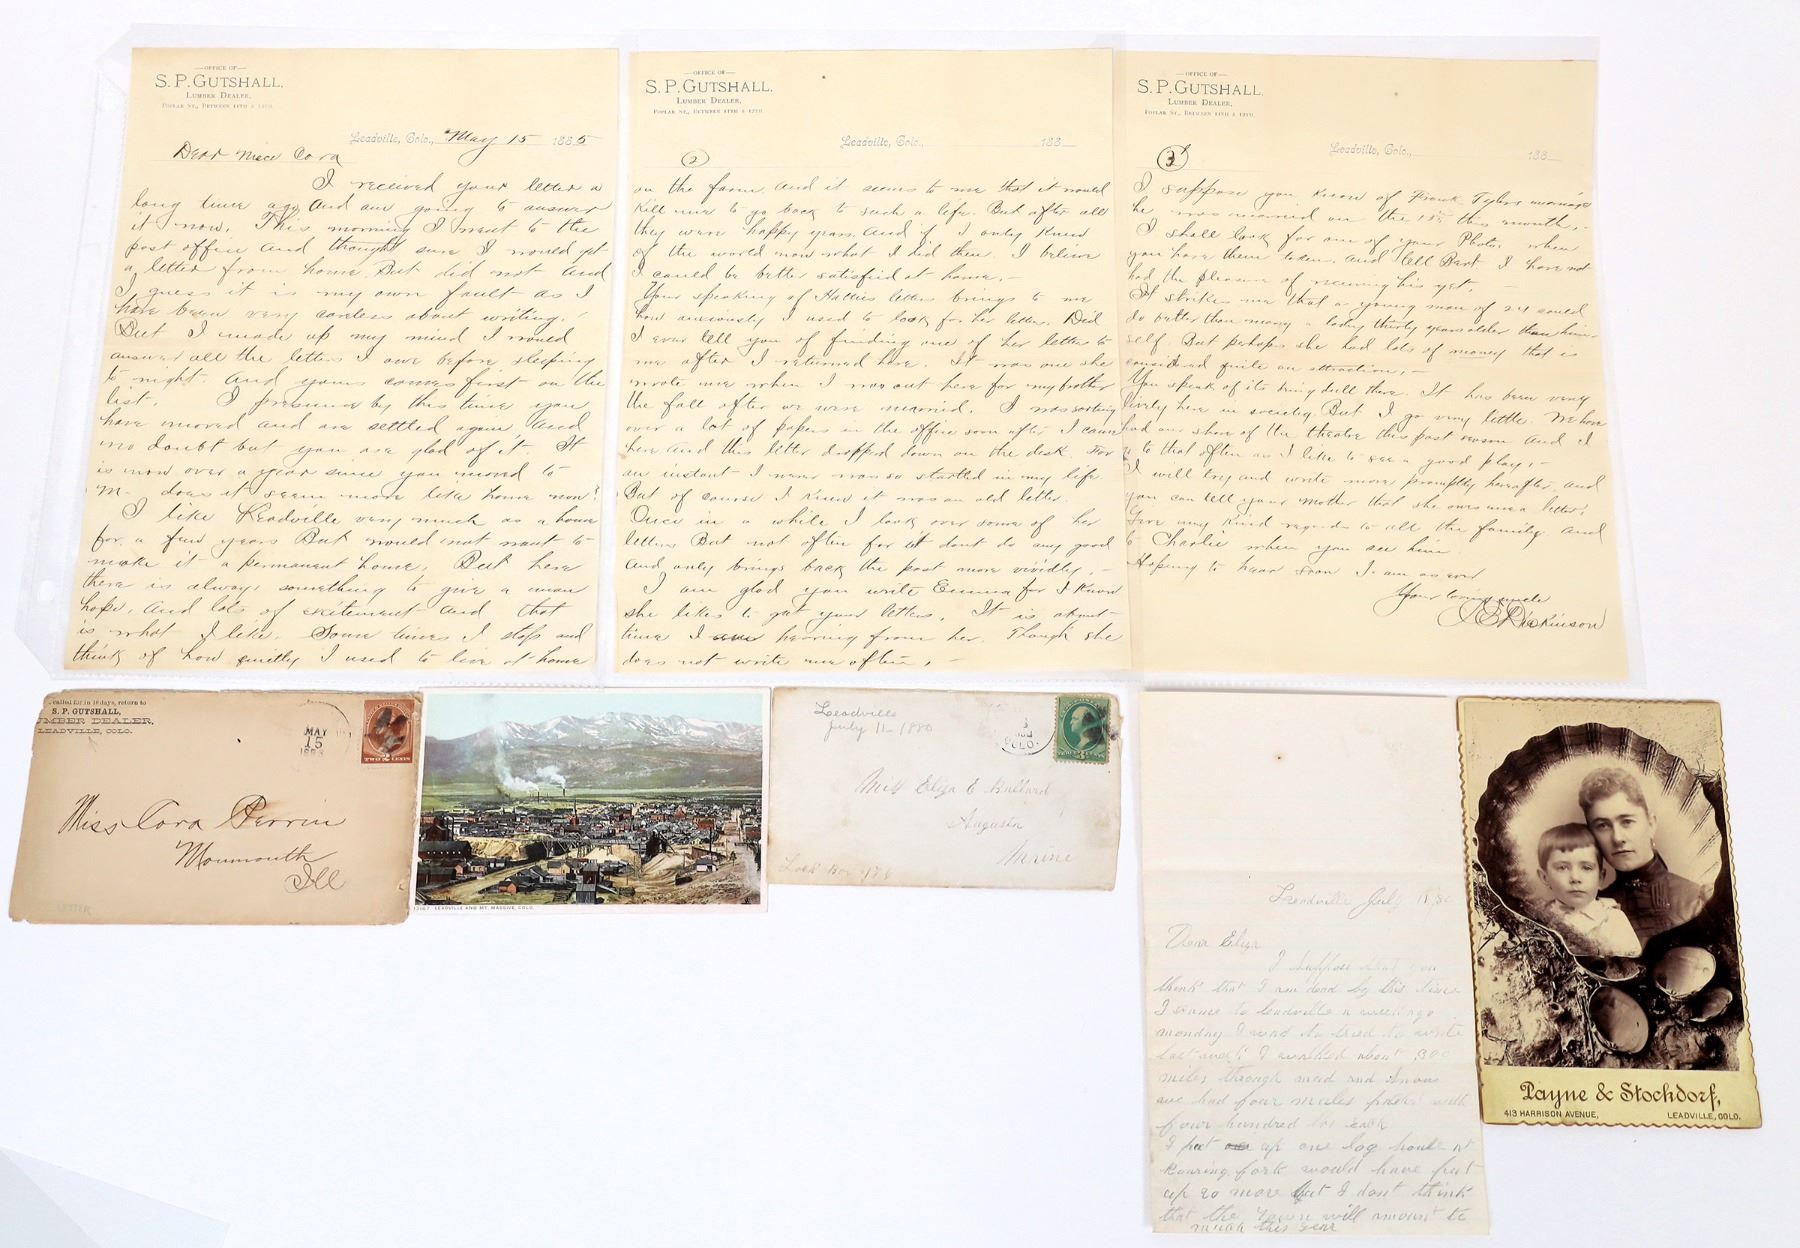 —OFFICE OF—
S. P. GUTSHALL,
LUMBER DEALER,
POPLAR ST., BETWEEN 11TH & 12TH.
Leadville, Colo., May 15 1885
Dear Niece Cora
I received your letter a
long time ago and am going to answer
it now. This morning I went to the
post office and thought sure I would get
a letter from home. But did not and
I guess it is my own fault as I
have been very careless about writing.
But I made up my mind I would
answer all the letters I owe before sleeping
to night. And yours comes first on the
list. I presume by this time you
have moved and are settled again, and
no doubt but you are glad of it. It
is now over a year since you moved to
M- does it seem more like home now?
I like Leadville very much as a home
for a few years But would not want to
make it a permanent home. But here
there is always something to give a man
hope, and lots of excitement and that
is what I like. Some times I stop and
think of how quietly I used to live at home
—OFFICE OF—
S. P. GUTSHALL,
LUMBER DEALER,
POPLAR ST., BETWEEN 11TH & 12TH.
Leadville, Colo., 188
(2)
on the farm. And it seems to me that it would
kill me to go back to such a life. But after all
they were happy years. And if I only knew
of the world now what I did then. I believe
I could be better satisfied at home.-
Your speaking of Hatties letters brings to me
how anxiously I used to look for her letters. Did
I ever tell you of finding one of her letters to
me after I returned here. It was one she
wrote me when I was out here for my brother
the fall after we were married. I was sorting
over a lot of papers in the office soon after I came
here and this letter dropped down on the desk. For
an instant I never was so started in my life
But of course I knew it was an old letter.
Once in a while I look over some of her
letters But not often for it dont do any good
and only brings back the past more vividly.-
I am glad you write Emma for I know
she likes to get your letters. It is about
time I hearing from her. Though she
does not write me often.-
—OFFICE OF—
S. P. GUTSHALL,
LUMBER DEALER,
POPLAR ST., BETWEEN 11TH & 12TH.
Leadville, Colo., 188
(3)
I suppose you know of Frank Tylers marriage
he was married on the this month.-
I shall look for one of your Photos. when
you have them taken. And tell Bert I have not
had the pleasure of receiving his yet.-
It strikes me that a young man of 24 could
do better than marry a lady thirty years older than him
self. But perhaps she had lots of money that is
considered quite an attraction.-
You speak of its being dull there. It has been very
lively here in society. But I go very little. We have
had our share of the theatre this past season and I
go to that often as I like to see a good play.-
I will try and write more promptly hereafter. and
you can tell your mother that she owes me a letter.
Give my kind regards to all the family and
to Charlie when you see him.
Hoping to hear soon I am as ever
Your loving uncle
Dickinson
called for in 10 days, return to
S. P. GUTSHALL,
UMBER DEALER,
LEADVILLE, COLO.
MAY
15
TWO 2 CENTS
Miss Cora Perrin
Monmouth
Ill
LETTER
LEADVILLE AND MT. MASSIVE, COLO.
Leadville
July 11 1880
COLO.
Miss Eliza E Bullard
Augusta
Maine
Lock Box 176
Leadville July 11 80
Dear Eliza
I suppose that you
think that I am dead by this time
I came to Leadville a week ago
monday I tried to write
last week I walked about 300
miles through mud and snow
we had four mules packed with
four hundred lbs each
I put up one log house at
Roaring fork would have put
up 20 more but I dont think
that the town will amount to
much this year
Payne & Stockdorf,
413 HARRISON AVENUE, LEADVILLE, COLO.